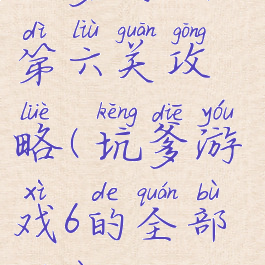 dì liù guān gōng
第六关攻
lüè kēng diē yóu
略(坑爹游
xì de quán bù
戏6的全部